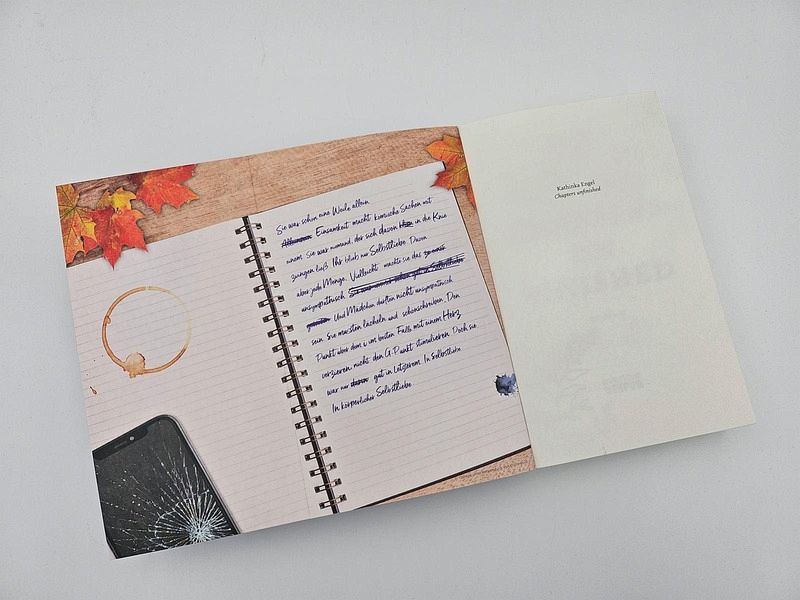 Sie war schon eine Weile allein.
Einsamkeit macht komische Sachen mit
einem. Sie war niemand, der sich davon in die Knie
zwingen ließ. Ihr blieb nur Selbstliebe. Davon
aber jede Menge. Vielleicht machte sie das
unsympathisch.
Und Mädchen durften nicht unsympathisch
sein. Sie mussten lächeln und schönschreiben. Den
Punkt über dem i im besten Fall mit einem Herz
verzieren, nicht den G-Punkt stimulieren. Doch sie
war nur gut in Letzterem. In Selbstliebe.
In körperlicher Selbstliebe.
Kathinka Engel
Chapters unfinished